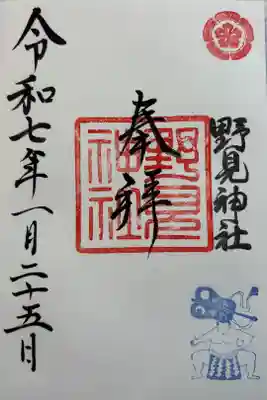 野見神社
奉拝
野見神社
令和七年一月二十五日